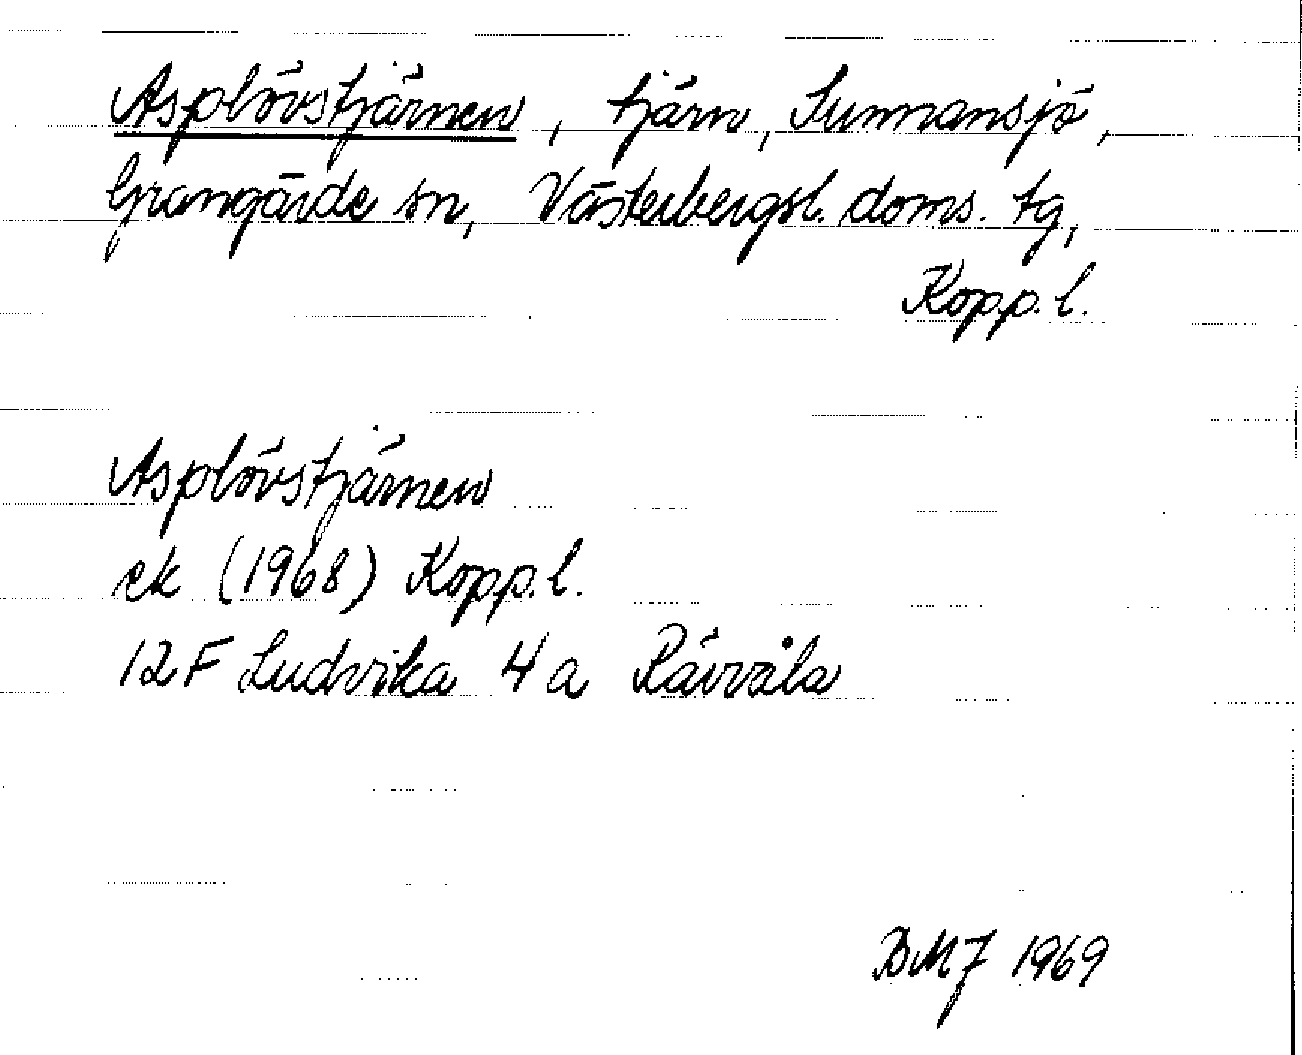 Asplövstjärnen, tjärn, Sunnansjö,
Grangärde sn, Västerbergsl. doms. tg,
Kopp. l.
Asplövstjärnen
ek (1968) Kopp. l.
12F Ludvika 4a Rävvåla
BMJ 1969